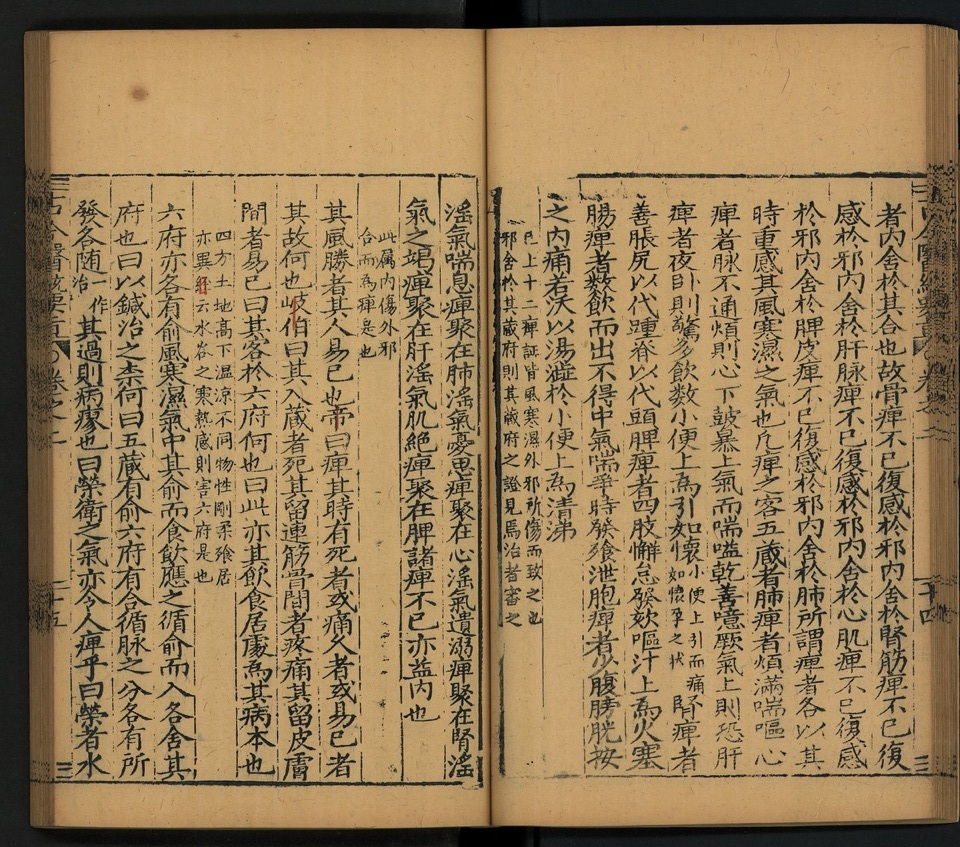 者内舍於其合也故骨痹不已復感於邪内舍於腎筋痹不已復
感於邪内舍於肝脉痹不已復感於邪内舍於心肌痹不已復感
於邪内舍於脾皮痹不已復感於邪内舍於肺所謂痹者各以其
時重感其風寒濕之氣也凡痹之客五藏者肺痹者煩滿喘嘔心
痹者脉不通煩則心下皷暴上氣而喘嗌乾善噫厥氣上則恐肝
痹者夜卧則驚多飲數小便上為引如懷小便上引而痛如懷孕之状腎痹者
善脹尻以代踵脊以代頭脾痹者四肢懈怠發欬嘔汁上為火塞
腸痹者數飲而出不得中氣喘爭時發飧泄胞痹者少腹膀胱按
之内痛若沃以湯澁於小便上為清涕
已上十二痹証皆風寒濕外邪所傷而致之也
邪舍於其藏府則其藏府之證見焉治者審之
滛氣喘息痹聚在肺滛氣憂思痹聚在心滛氣遺溺痹聚在腎滛
氣乏竭痹聚在肝滛氣肌絶痹聚在脾諸痹不已亦益内也
此属内傷外邪
合而為痹是也
其風勝者其人易已也帝曰痹其時有死者或痛久者或易已者
其故何也岐伯曰其入藏者死其留連筋骨間者疼痛其留皮膚
間者易已曰其客於六府何也曰此亦其飲食居處為其病本也
四方土地高下温凉不同物性剛柔飱居
亦異 云水谷之寒熱感則害六府是也
六府亦各有俞風寒濕氣中其俞而食飲應之循俞而入各舍其
府也曰以鍼治之柰何曰五藏有俞六府有合循脉之分各有所
發各随一作治其過則病瘳也曰榮衛之氣亦令人痹乎曰榮者水
卷之二
二十四
卷之二
二十五